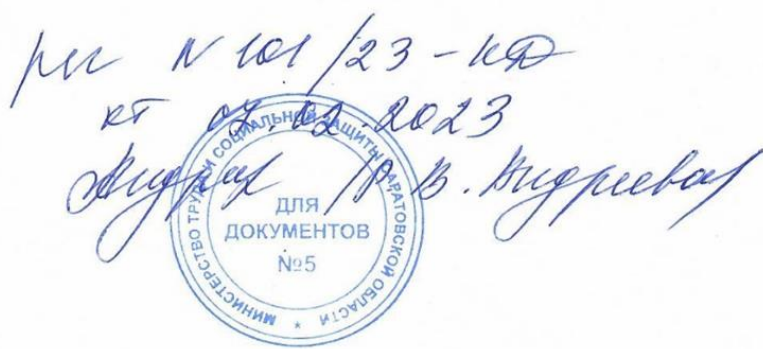 рег N 101/23-КД
от 07.02.2023
Андреев /Р.В. Андреева/
МИНИСТЕРСТВО ТРУДА И СОЦИАЛЬНОЙ ЗАЩИТЫ САРАТОВСКОЙ ОБЛАСТИ *
ДЛЯ
ДОКУМЕНТОВ
№5